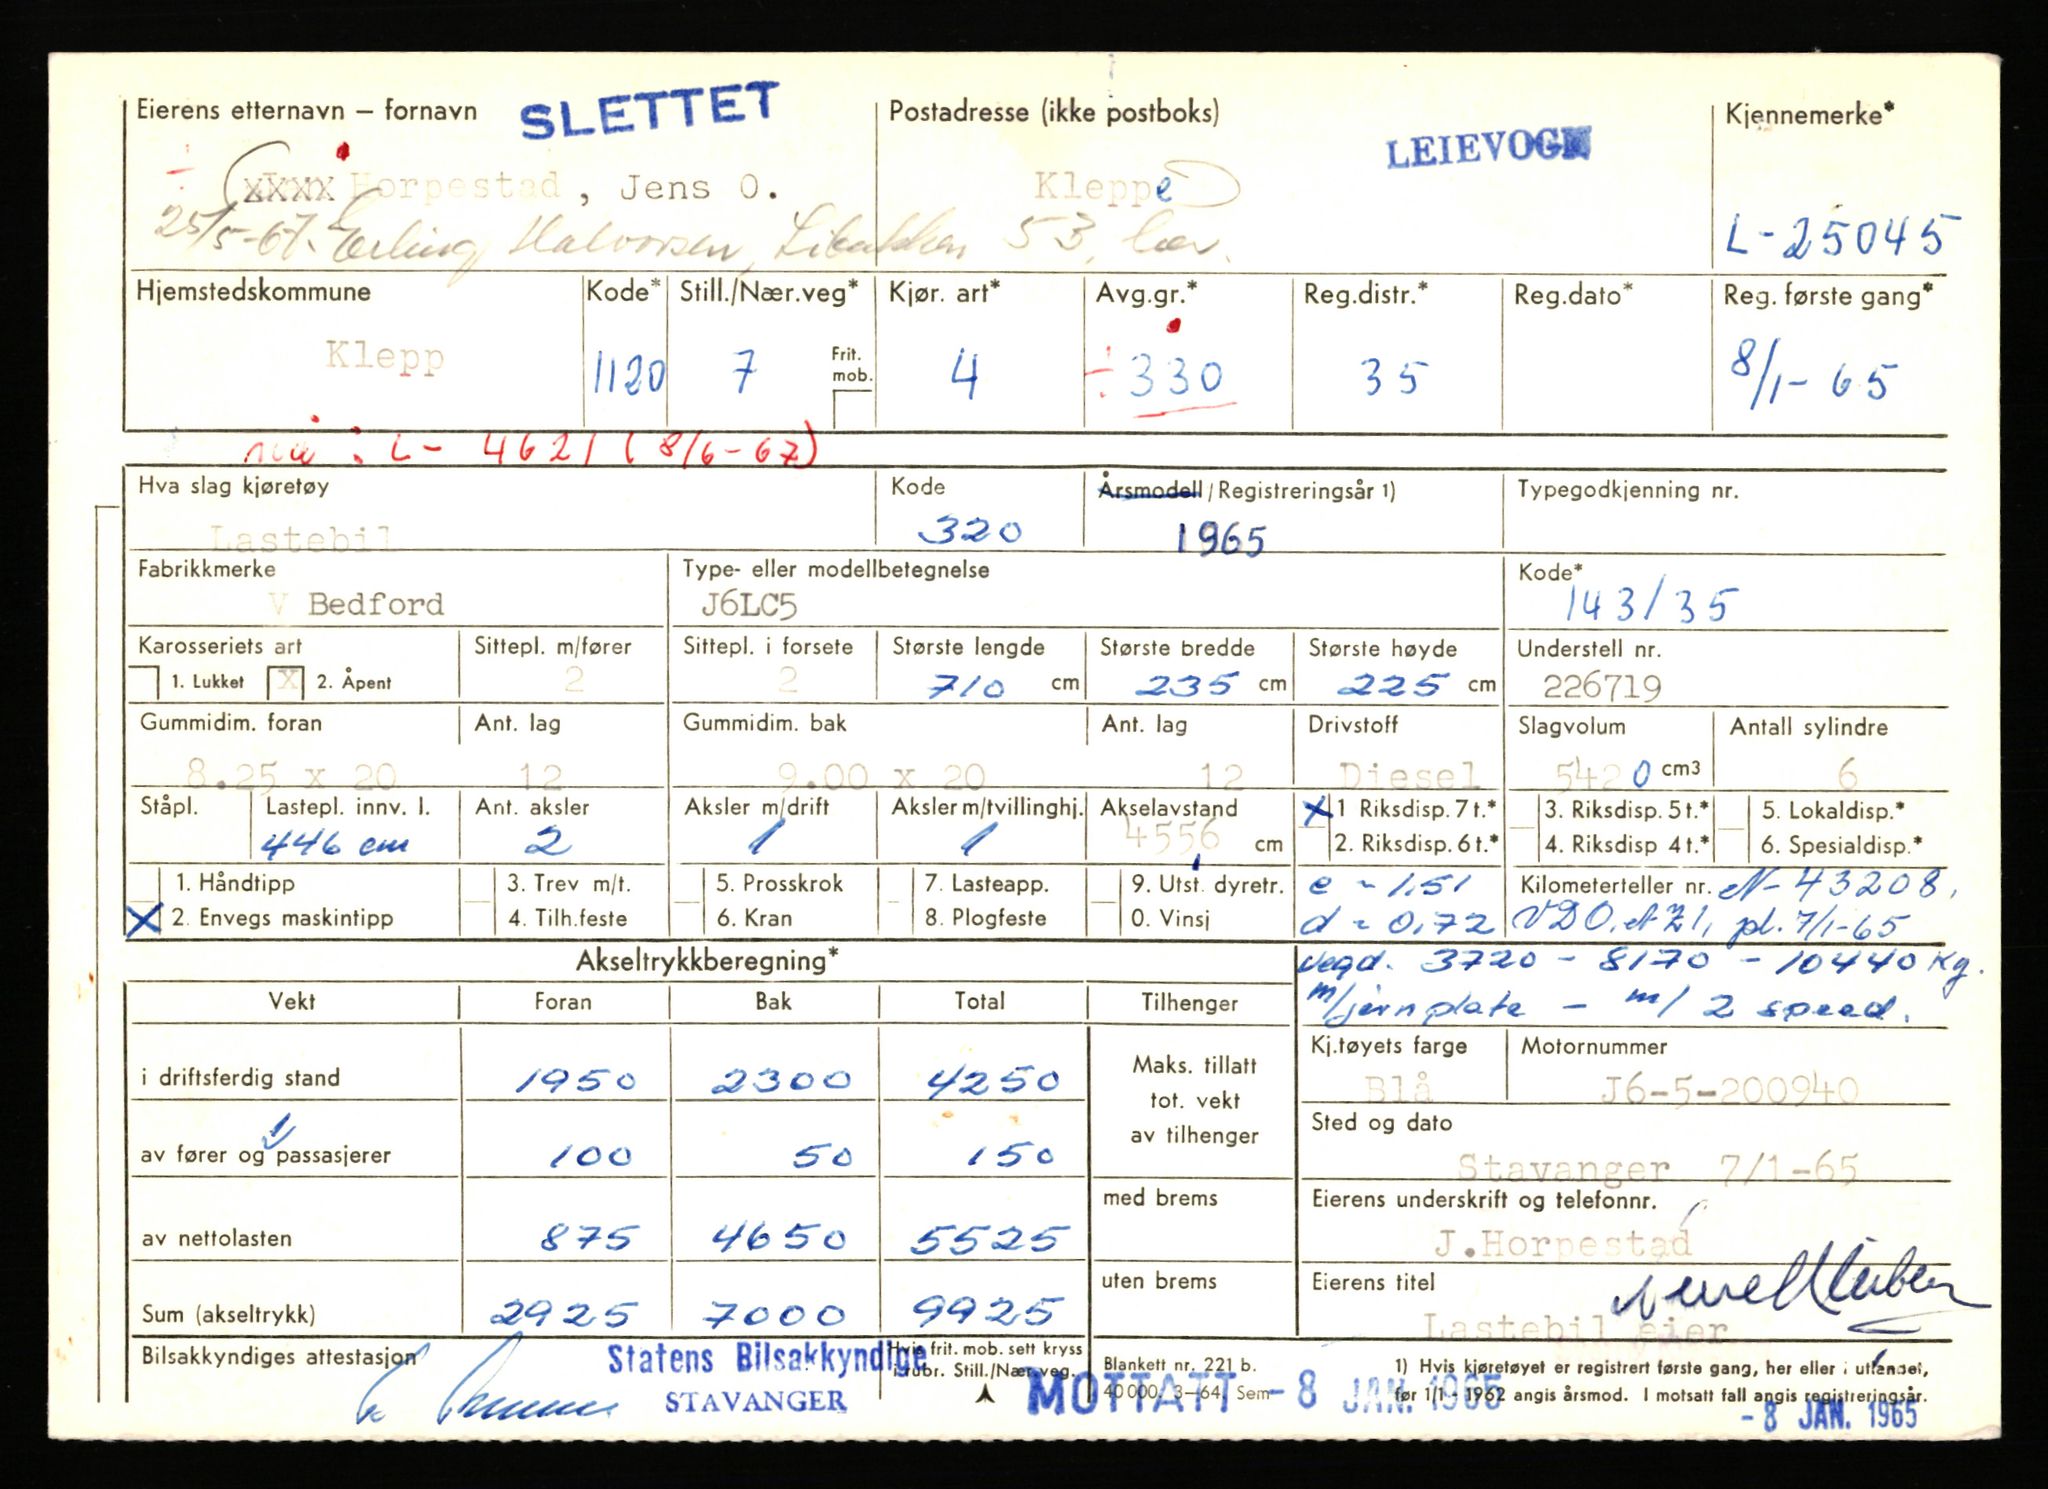 Eierens etternavn – fornavn SLETTET Postadresse (ikke postboks) LEIEVOGN Kjennemerke*
÷ xxxx Horpestad, Jens O. Kleppe
25/5-67. Erling Halvorsen, 53, her. L-25045
Hjemstedskommune Kode* Still./Nær.veg* Kjør. art* Avg.gr.* Reg.distr.* Reg.dato* Reg. første gang*
Klepp 1120 7 Frit. mob. 4 ÷ 330 35 8/1-65
nå: L- 4621 (8/6-67)
Hva slag kjøretøy Kode Årsmodell/Registreringsår 1) Typegodkjenning nr.
Lastebil 320 1965
Fabrikkmerke Type- eller modellbetegnelse Kode*
V Bedford J6LC5 143/35
Karosseriets art Sittepl. m/fører Sittepl. i forsete Største lengde Største bredde Største høyde Understell nr.
1. Lukket X 2. Åpent 2 2 710 cm 235 cm 225 cm 226719
Gummidim. foran Ant. lag Gummidim. bak Ant. lag Drivstoff Slagvolum Antall sylindre
8.25 x 20 12 9.00 x 20 12 Diesel 5420 cm3 6
Ståpl. Lastepl. innv. l. Ant. aksler Aksler m/drift Aksler m/tvillinghj. Akselavstand X 1 Riksdisp. 7 t.* 3. Riksdisp. 5 t.* 5. Lokaldisp.*
446 cm 2 1 1 4556 cm 2. Riksdisp. 6 t.* 4. Riksdisp 4 t.* 6. Spesialdisp.*
1. Håndtipp 3. Trev m/t. 5. Prosskrok 7. Lasteapp. 9. Utst. dyretr. e = 1,51 Kilometerteller nr. N-43208,
X 2. Envegs maskintipp 4. Tilh.feste 6. Kran 8. Plogfeste 0. Vinsj d = 0,72 VDO, pl. 7/1-65
Akseltrykkberegning* vegd. 3720 - 8170 - 10440 kg.
Vekt Foran Bak Total Tilhenger m/jernplate - m/ 2 speed.
i driftsferdig stand 1950 2300 4250 Maks. tillatt tot. vekt av tilhenger Kj.tøyets farge Motornummer
Blå J6-5-200940
av fører og 1 passasjerer 100 50 150 Sted og dato
Stavanger 7/1-65
av nettolasten 875 4650 5525 med brems Eierens underskrift og telefonnr.
J.Horpestad
Sum (akseltrykk) 2925 7000 9925 uten brems Eierens titel
Lastebil eier
Bilsakkyndiges attestasjon Statens Bilsakkyndige Hvis frit. mob. sett kryss i rubr. Still./Nær.veg. Blankett nr. 221 b. 1) Hvis kjøretøyet er registrert første gang, her eller i utlandet,
STAVANGER MOTTATT - 8 JAN. 1965 40 000. 3–64. Sem før 1/1 - 1962 angis årsmod. I motsatt fall angis registreringsår.
- 8 JAN. 1965